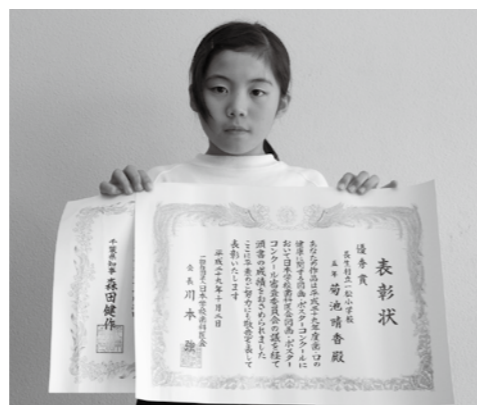 表彰状
優秀賞
長生村立一松小学校
五年 菊池晴香殿
あなたの作品は平成二十九年度歯・口の
健康に関する図画・ポスターコンクールに
おいて日本学校歯科医会図画・ポスター
コンクール審査委員会の議を経て
頭書の成績をおさめられました
ここに平素のご努力にも敬意を表して
表彰いたします
平成二十九年十月三日
一般社団法人日本学校歯科医会
会長 川本強
千葉県知事 森田健作